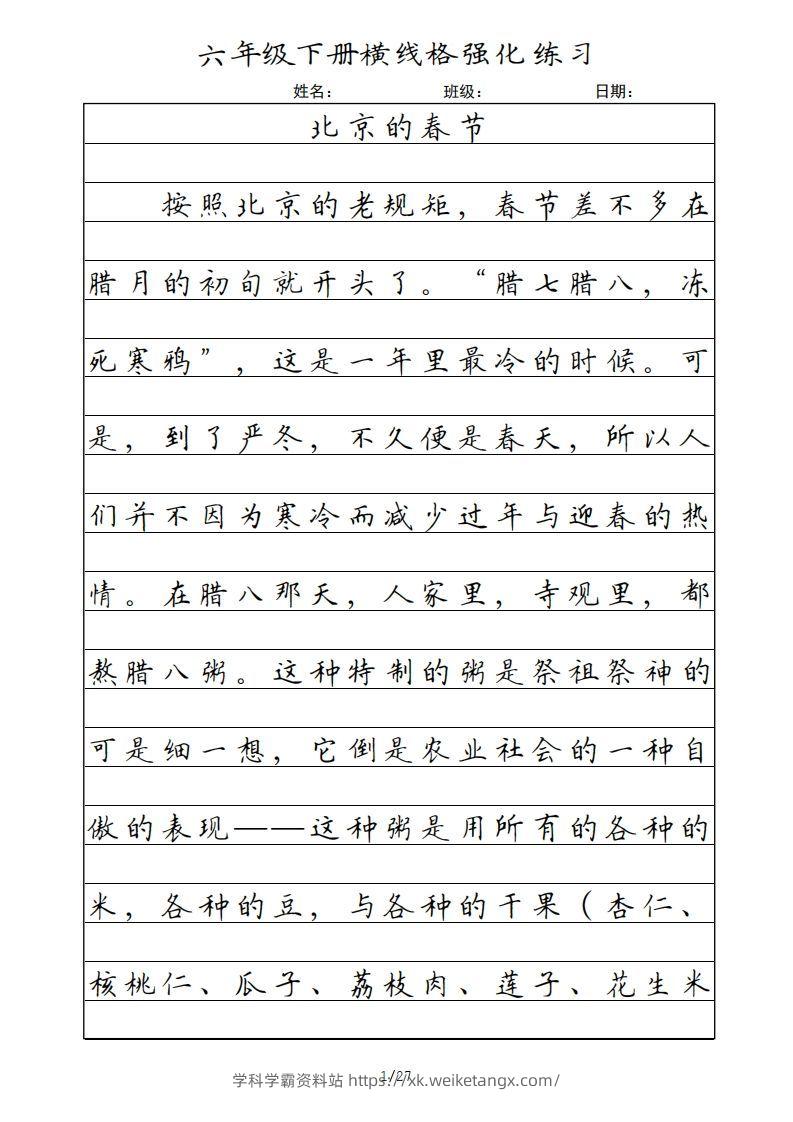 六年级下册横线格强化练习
姓名： 班级： 日期：
北京的春节
按照北京的老规矩，春节差不多在
腊月的初旬就开头了。“腊七腊八，冻
死寒鸦”，这是一年里最冷的时候。可
是，到了严冬，不久便是春天，所以人
们并不因为寒冷而减少过年与迎春的热
情。在腊八那天，人家里，寺观里，都
熬腊八粥。这种特制的粥是祭祖祭神的
可是细一想，它倒是农业社会的一种自
傲的表现——这种粥是用所有的各种的
米，各种的豆，与各种的干果（杏仁、
核桃仁、瓜子、荔枝肉、莲子、花生米
1/27
学科学霸资料站 https://xk.weiketangx.com/